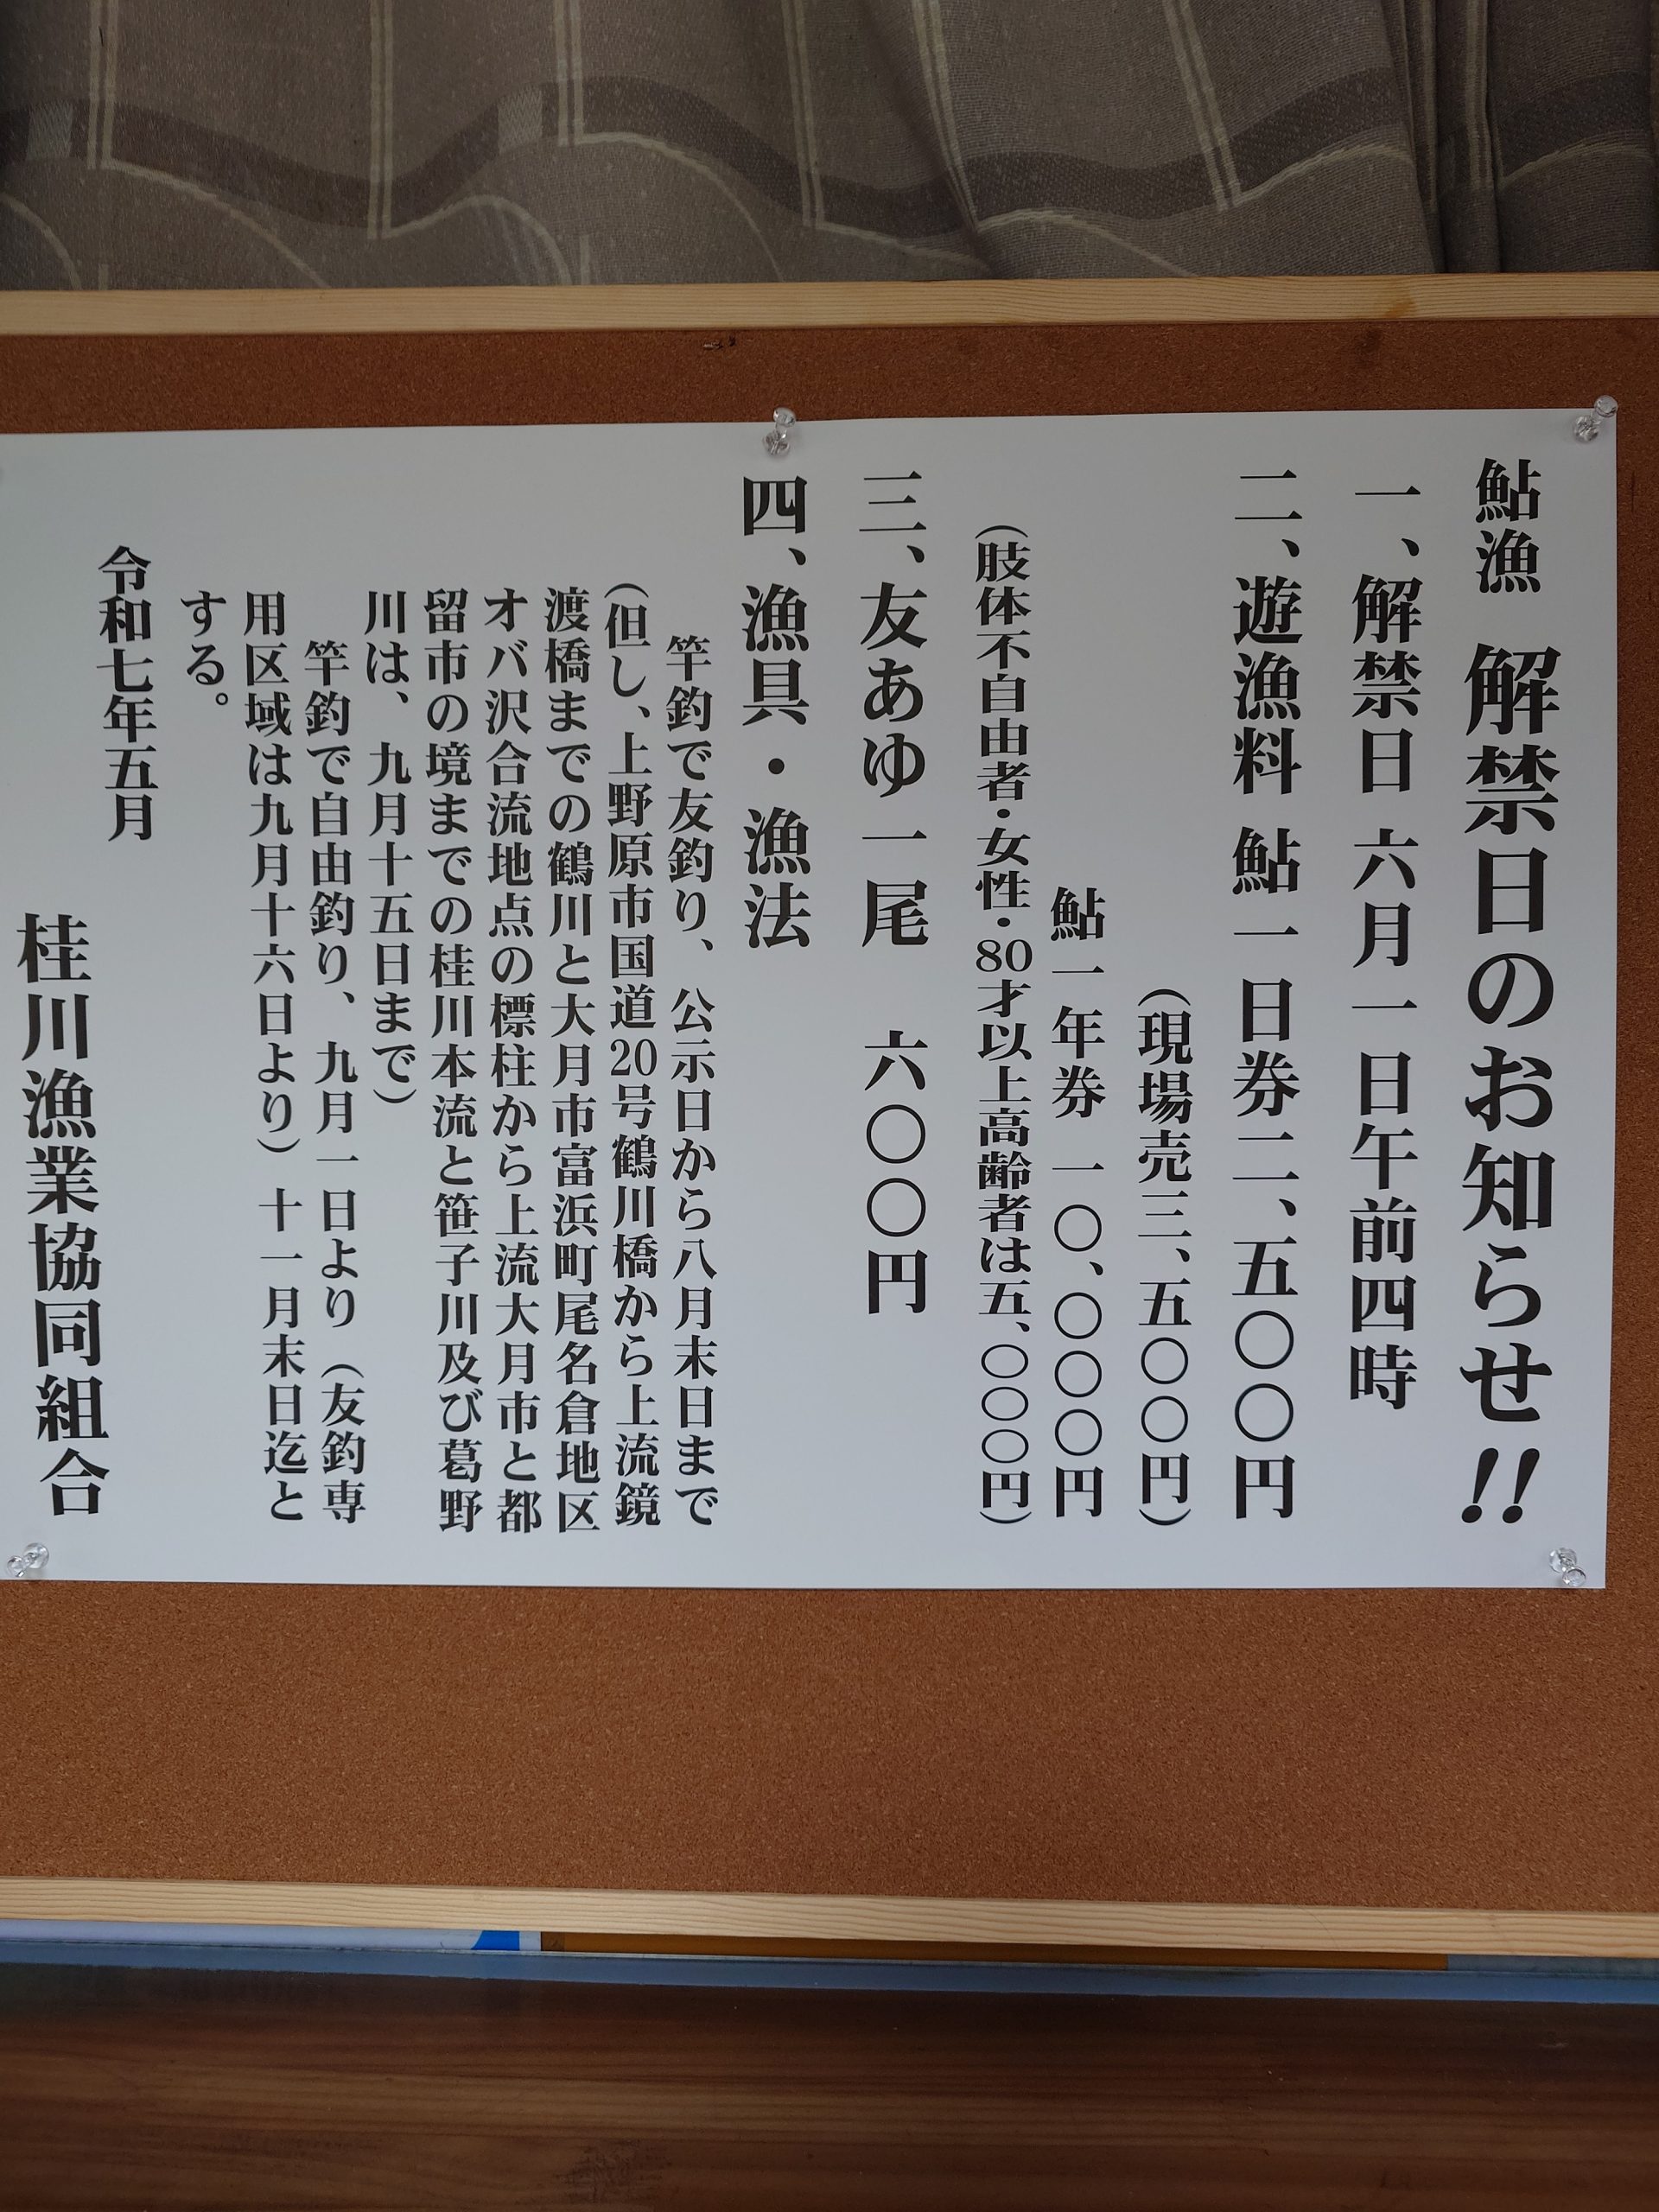 鮎漁　解禁日のお知らせ!!
一、解禁日　六月一日午前四時
二、遊漁料　鮎　一日券二、五〇〇円
（現場売三、五〇〇円）
鮎　一年券　一〇、〇〇〇円
（肢体不自由者・女性・80才以上高齢者は五、〇〇〇円）
三、友あゆ一尾　六〇〇円
四、漁具・漁法
竿釣で友釣り、公示日から八月末日まで
（但し、上野原市国道20号鶴川橋から上流鏡
渡橋までの鶴川と大月市富浜町尾名倉地区
オバ沢合流地点の標柱から上流大月市と都
留市の境までの桂川本流と笹子川及び葛野
川は、九月十五日まで）
竿釣で自由釣り、九月一日より（友釣専
用区域は九月十六日より）十一月末日迄と
する。
令和七年五月
桂川漁業協同組合